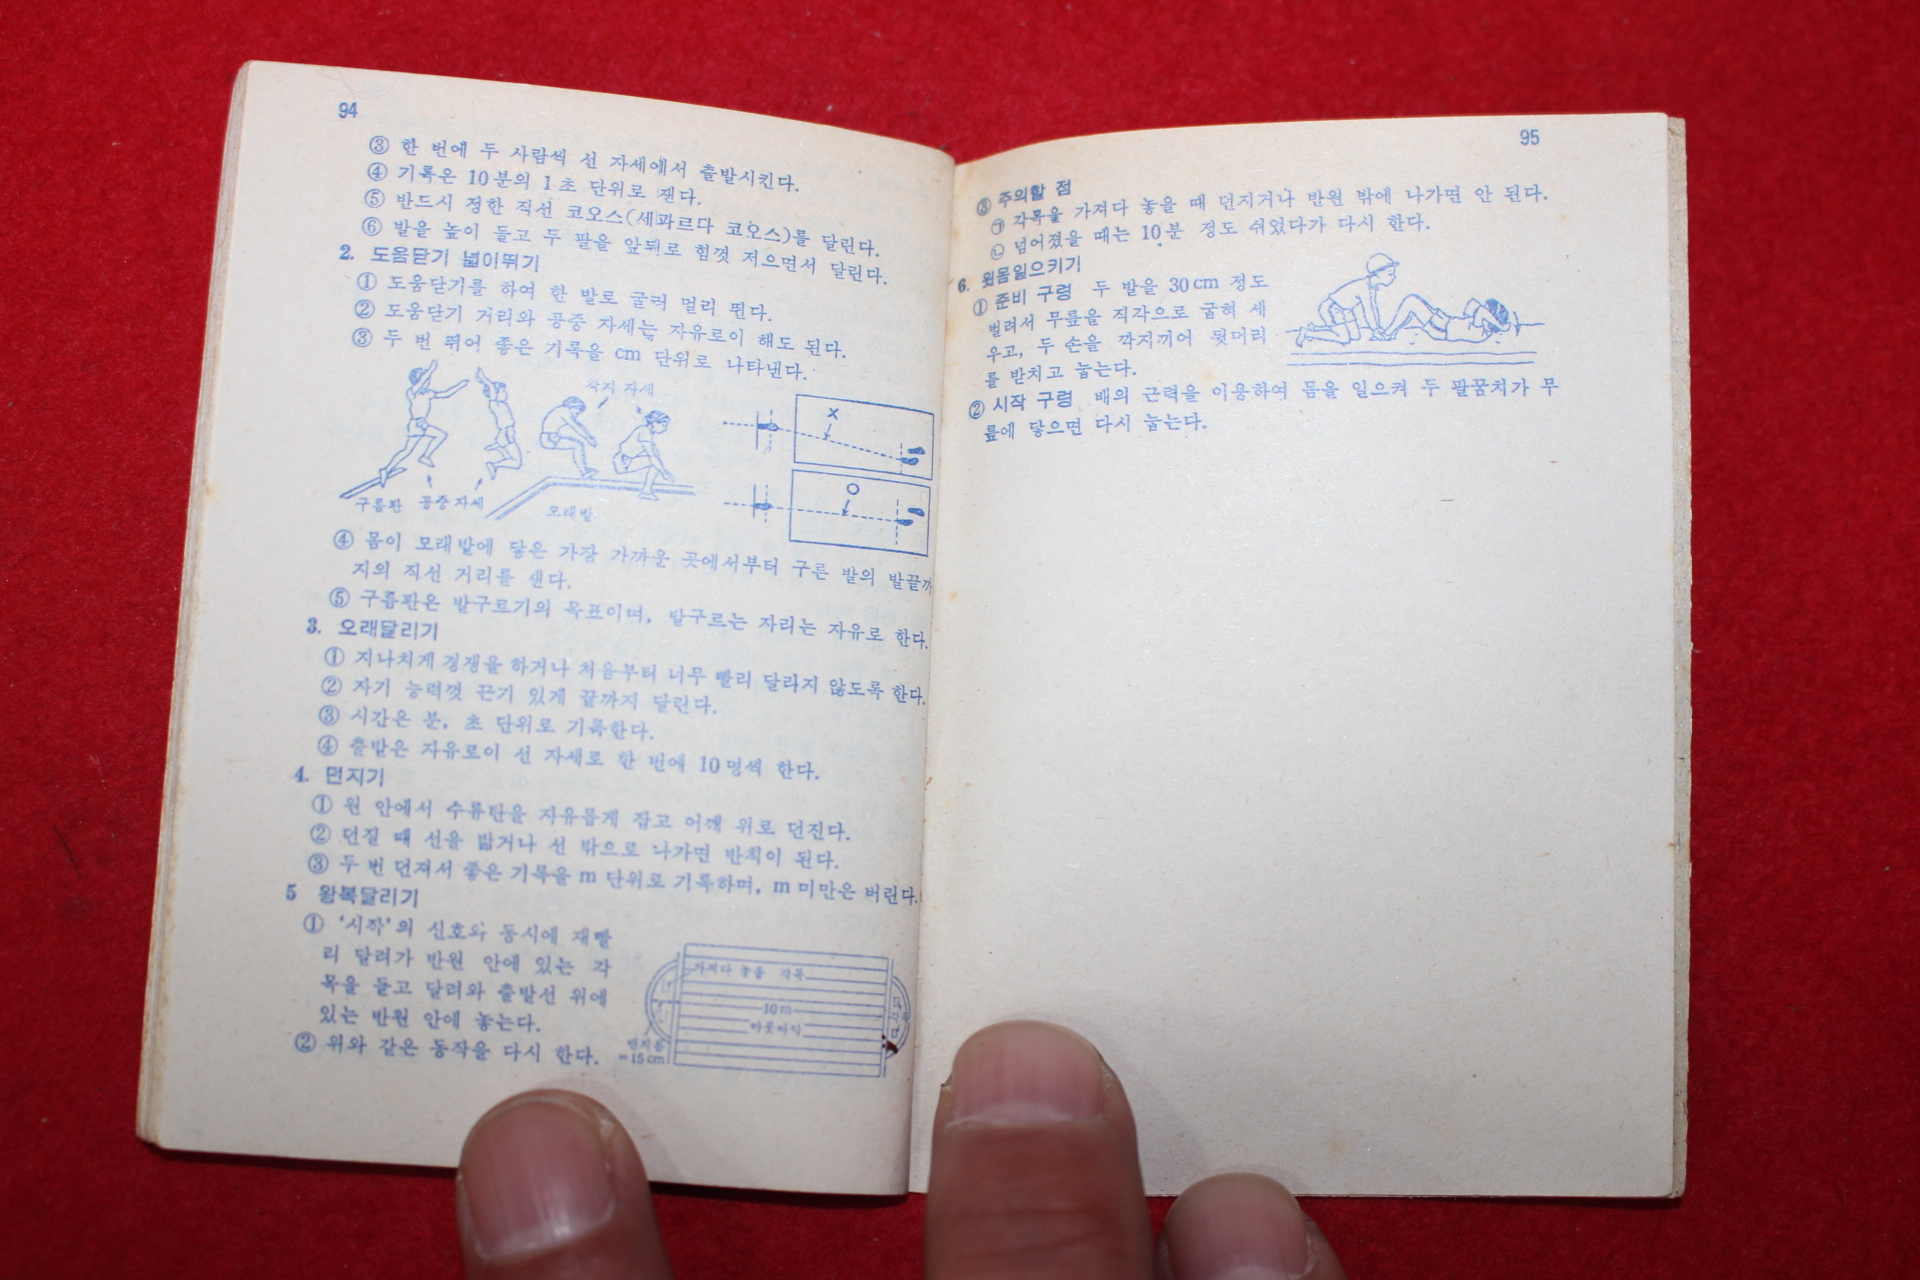 94
③ 한 번에 두 사람씩 선 자세에서 출발시킨다.
④ 기록은 10분의 1초 단위로 잰다.
⑤ 반드시 정한 직선 코오스(세파르다 코오스)를 달린다.
⑥ 발을 높이 들고 두 팔을 앞뒤로 힘껏 저으면서 달린다.
2. 도움닫기 넓이뛰기
① 도움닫기를 하여 한 발로 굴러 멀리 뛴다.
② 도움닫기 거리와 공중 자세는 자유로이 해도 된다.
③ 두 번 뛰어 좋은 기록을 cm 단위로 나타낸다.
착지 자세
구름판 공중자세
모래밭
④ 몸이 모래밭에 닿은 가장 가까운 곳에서부터 구른 발의 발끝까
지의 직선 거리를 잰다.
⑤ 구름판은 발구르기의 목표이며, 발구르는 자리는 자유로 한다.
3. 오래달리기
① 지나치게 경쟁을 하거나 처음부터 너무 빨리 달리지 않도록 한다.
② 자기 능력껏 끈기 있게 끝까지 달린다.
③ 시간은 분, 초 단위로 기록한다.
④ 출발은 자유로이 선 자세로 한 번에 10명씩 한다.
4. 던지기
① 원 안에서 수류탄을 자유롭게 잡고 어깨 위로 던진다.
② 던질 때 선을 밟거나 선 밖으로 나가면 반칙이 된다.
③ 두 번 던져서 좋은 기록을 m 단위로 기록하며, m 미만은 버린다.
5 왕복달리기
① '시작'의 신호와 동시에 재빨
리 달려가 반원 안에 있는 각
목을 들고 달려와 출발선 위에
있는 반원 안에 놓는다.
② 위와 같은 동작을 다시 한다.
가져다 놓을 각목
10m
마룻바닥
반지름
=15cm
95
③ 주의할 점
㉠ 각목을 가져다 놓을 때 던지거나 반원 밖에 나가면 안 된다.
㉡ 넘어졌을 때는 10분 정도 쉬었다가 다시 한다.
6. 윗몸일으키기
① 준비 구령 두 발을 30cm 정도
벌려서 무릎을 직각으로 굽혀 세
우고, 두 손을 깍지끼어 뒷머리
를 받치고 눕는다.
② 시작 구령 배의 근력을 이용하여 몸을 일으켜 두 팔꿈치가 무
릎에 닿으면 다시 눕는다.